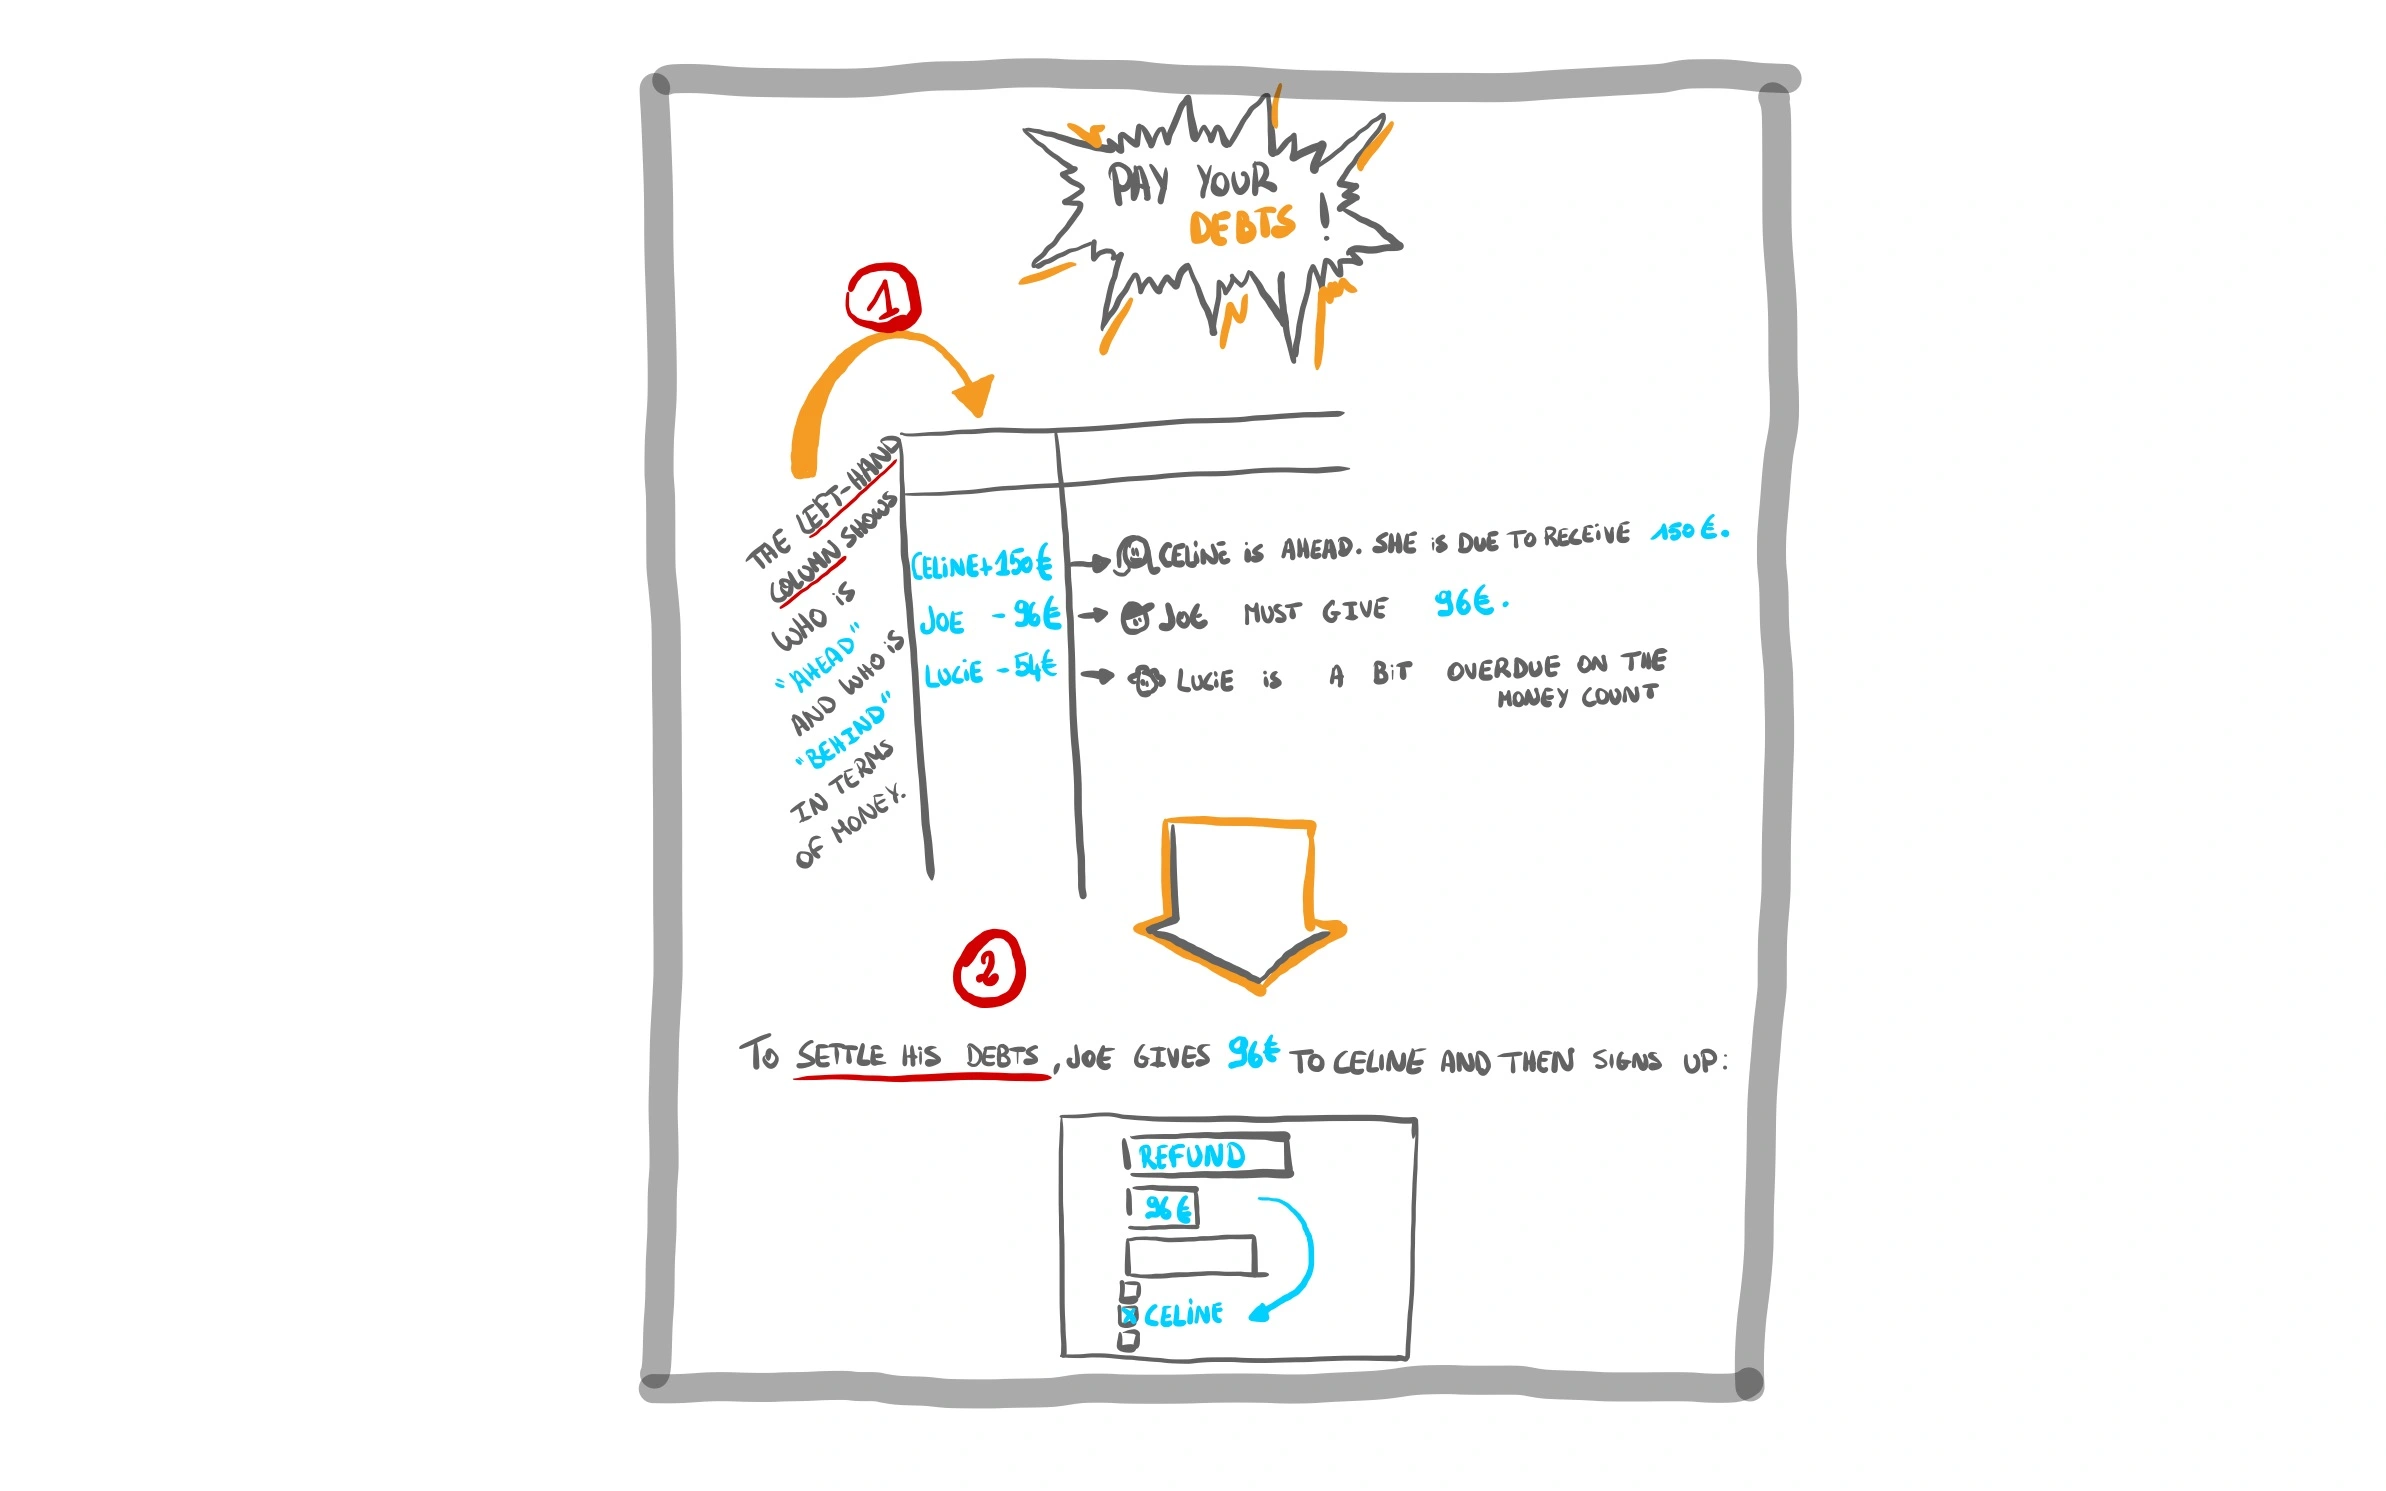 PAY YOUR
DEBTS !
1
THE LEFT-HAND
COLUMN SHOWS
WHO IS
"AHEAD"
AND WHO IS
"BEHIND"
IN TERMS
OF MONEY.
CELINE +150€
JOE -96€
LUCIE -54€
CELINE IS AHEAD. SHE IS DUE TO RECEIVE 150€.
JOE MUST GIVE 96€.
LUCIE IS A BIT OVERDUE ON THE
MONEY COUNT
2
TO SETTLE HIS DEBTS, JOE GIVES 96€ TO CELINE AND THEN SIGNS UP:
REFUND
96€
X CELINE